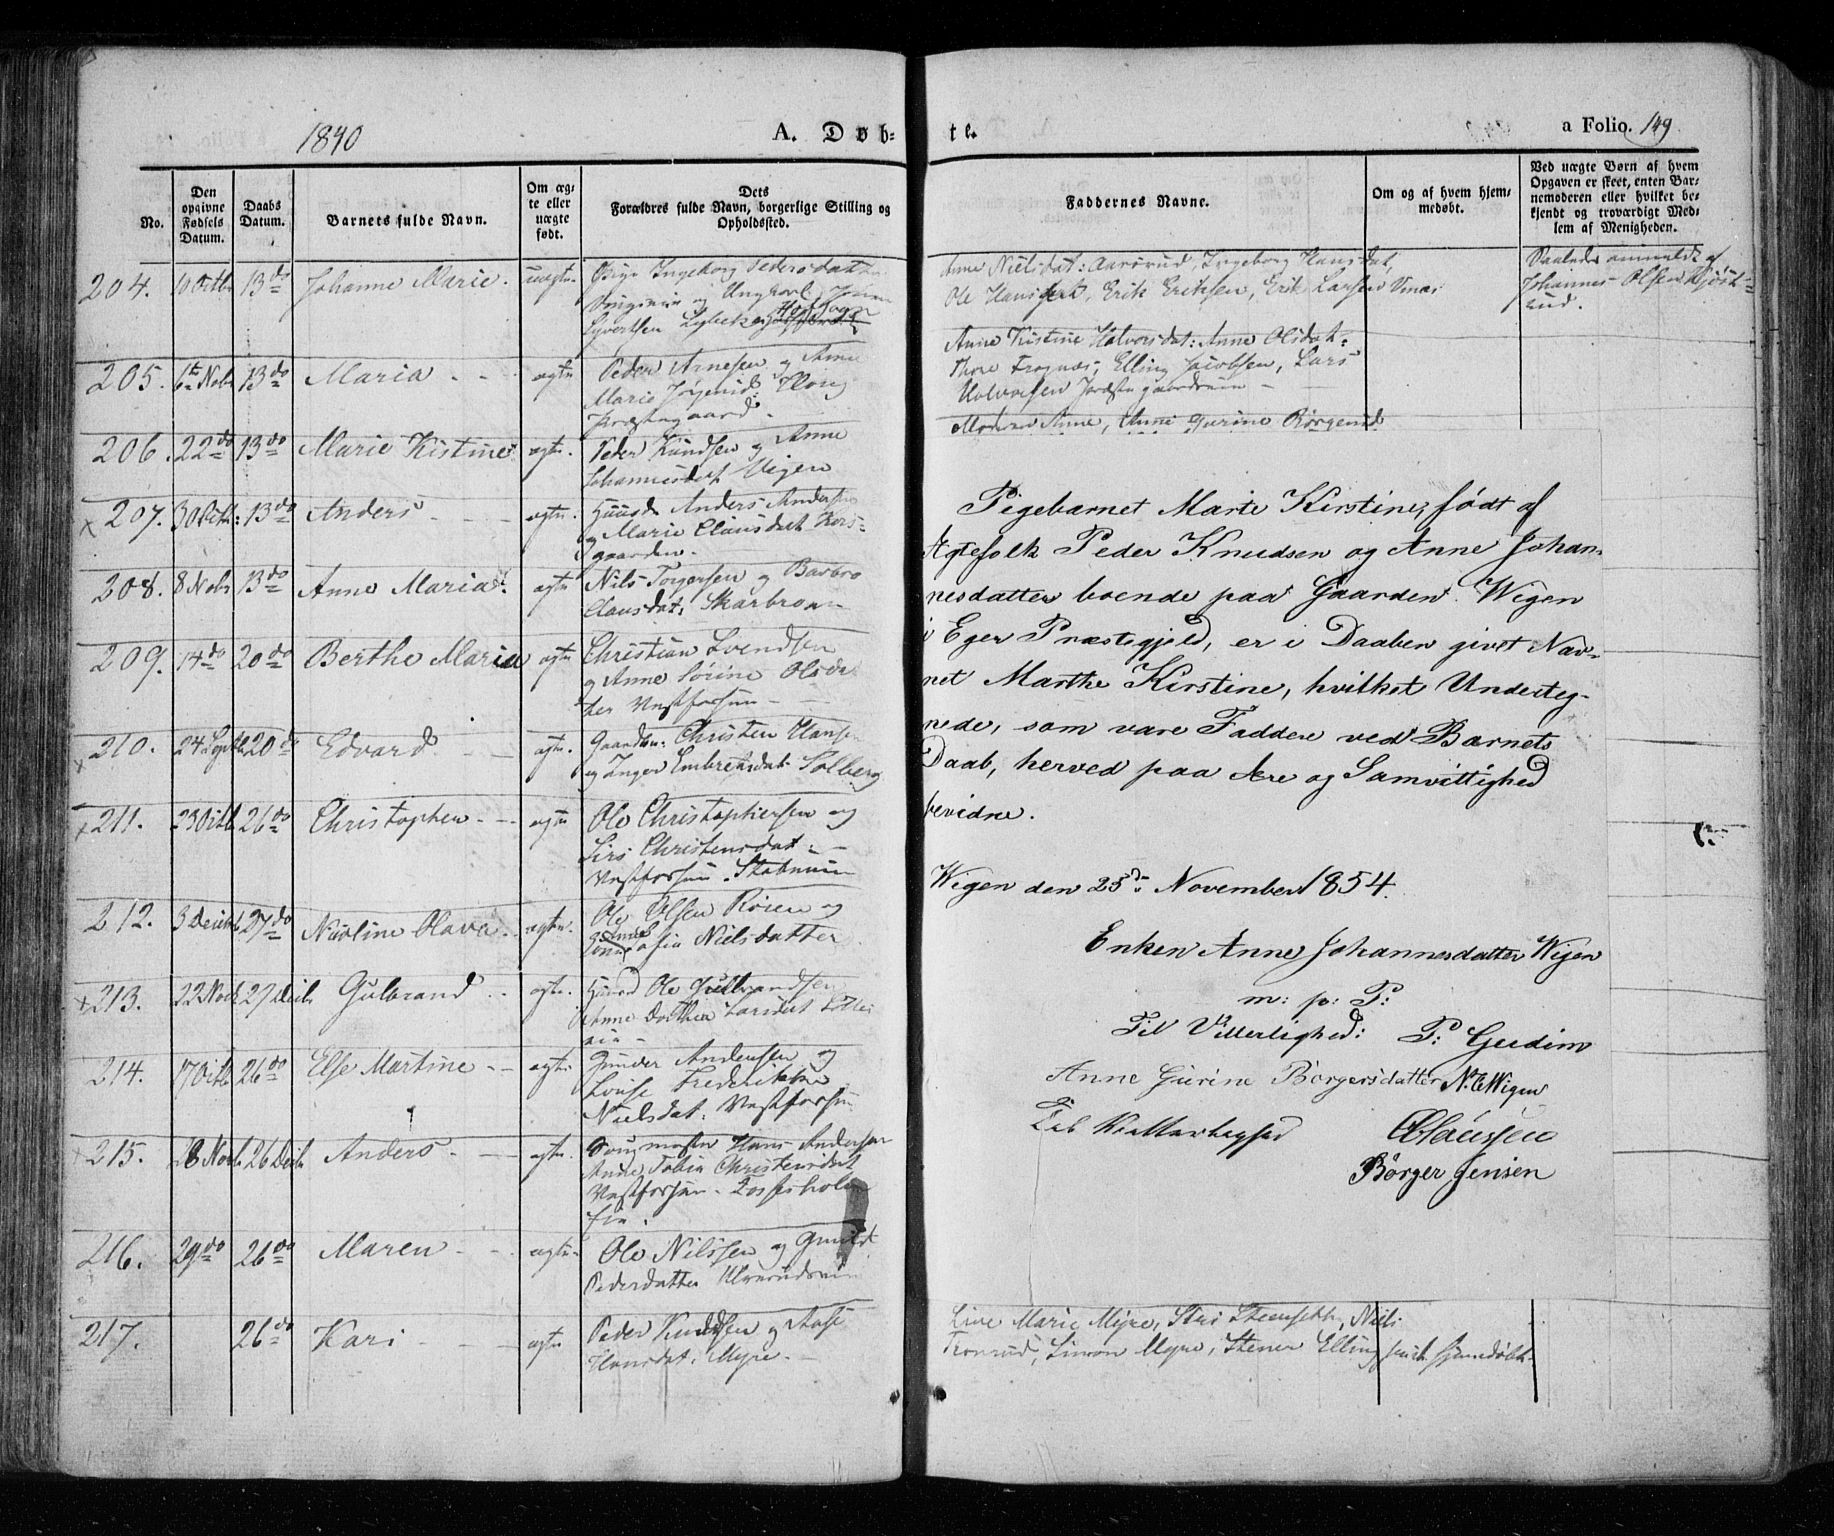 1840
A. Døb-
te.
a Folio. 149
No.
Den opgivne Fødsels Datum.
Daabs Datum.
Barnets fulde Navn.
Om ægte eller uægte født.
Dets Forældres fulde Navn, borgerlige Stilling og Opholdssted.
Faddernes Navne.
Om og af hvem hjemmedøbt.
Ved uægte Børn af hvem Opgaven er skeet, enten Barnemoderen eller hvilket bekjendt og troværdigt Medlem af Menigheden.
204. 10 Octbr 13do Johanne Marie. uægte. Pige Ingeborg Pedersdatter
og Ungkarl Johan
Syvertsen
Anne Nielsdat: Aasrud, Ingeborg Hansdat,
Ole Hans, Erik Eriksen, Erik Larsen Vinæs
Daaleds anmeldt af
Johannes Olsen
rud.
205. 6te Nobr 13do Maria - - ægte Peder Arnesen og Anne
Marie Jørgensd: Houg
Præstegaard.
Anne Kistine Halvorsdat: Anne Olsdat:
Thore Frognæs, Elling Jacobsen, Lars
Halvorsen Præstegaardseie -
206. 22do 13do Marie Kistine ægte. Peder Knudsen og Anne
Johannesdat Vigen
Moderen Anne, Anne Gurine Børgersd
x 207. 30 Octbr: 13do Anders - - - ægte. Huusm Anders Andersen
og Marie Clausdatt Kors-
gaarden.
208. 8 Nobr 13do Anne Maria. ægte Nils Torgersen og Barbro
Clausdat: Skarbroen
209. 14do 20do Berthe Maria ægte Christian Svendsen
og Anne Sørine Olsdat
ter Vestforsum -
x 210. 24 Septb 20do Edvard - - ægte. Gaardm: Christen Hansen
og Inger Embretsdat: Solberg
x 211. 23 Octb 26do Christopher - - ægte Ole Christophersen og
Siri Christensdat: -
Vestforsum
212. 3 Decbr 27do Nicoline Olava. ægte. Ole Olsen Rosen og
Anne Sofia Nielsdatter
x 213. 22 Nov 27 Decbr Gulbrand - - ægte. Huusm Ole Gulbrandsen
Anne Dorthea Larsdat
eie -
214. 17 Octb 26do Else Martine - - ægte. Gunder Andersen og
Louise Frederikke
Nielsdat: Vestforsum
x 215. 18 Novb 26 Decbr Anders - - ægte. Hans Andersen
Anne Tobia Christensdat
Vestforsum - Fossesholm
eie.
216. 29do 26do Maren - - ægte - Ole Nilssen og Gunild
Pedersdatter Ulverudseie
217. 26do Kari - - ægte Peder Knudsen og Aase
Hansdat: Myre. -
Live Marie Myre, Siri Steenseth, Niels
Tronrud, Simon Myre, Stener Elling hjemdøbt.
Pigebarnet Marte Kirstine, født af
Ægtefolk Peder Knudsen og Anne Johan-
nesdatter boende paa Gaarden Wigen
i Eger Præstegjeld, er i Daaben givet Nav-
net Marthe Kirstine, hvilket Underteg-
nede, som vare Faddere ved Barnets
Daab, herved paa Ære og Samvittighed
bevidne.
Wigen den 25de November 1854.
Enken Anne Johannesdatter Wigen
m: p: P:
Til Vitterlighed: P: Gudim
Anne Gurine Børgersdatter N. E Wigen
Til Vitterlighed Claussen
Børger Jensen